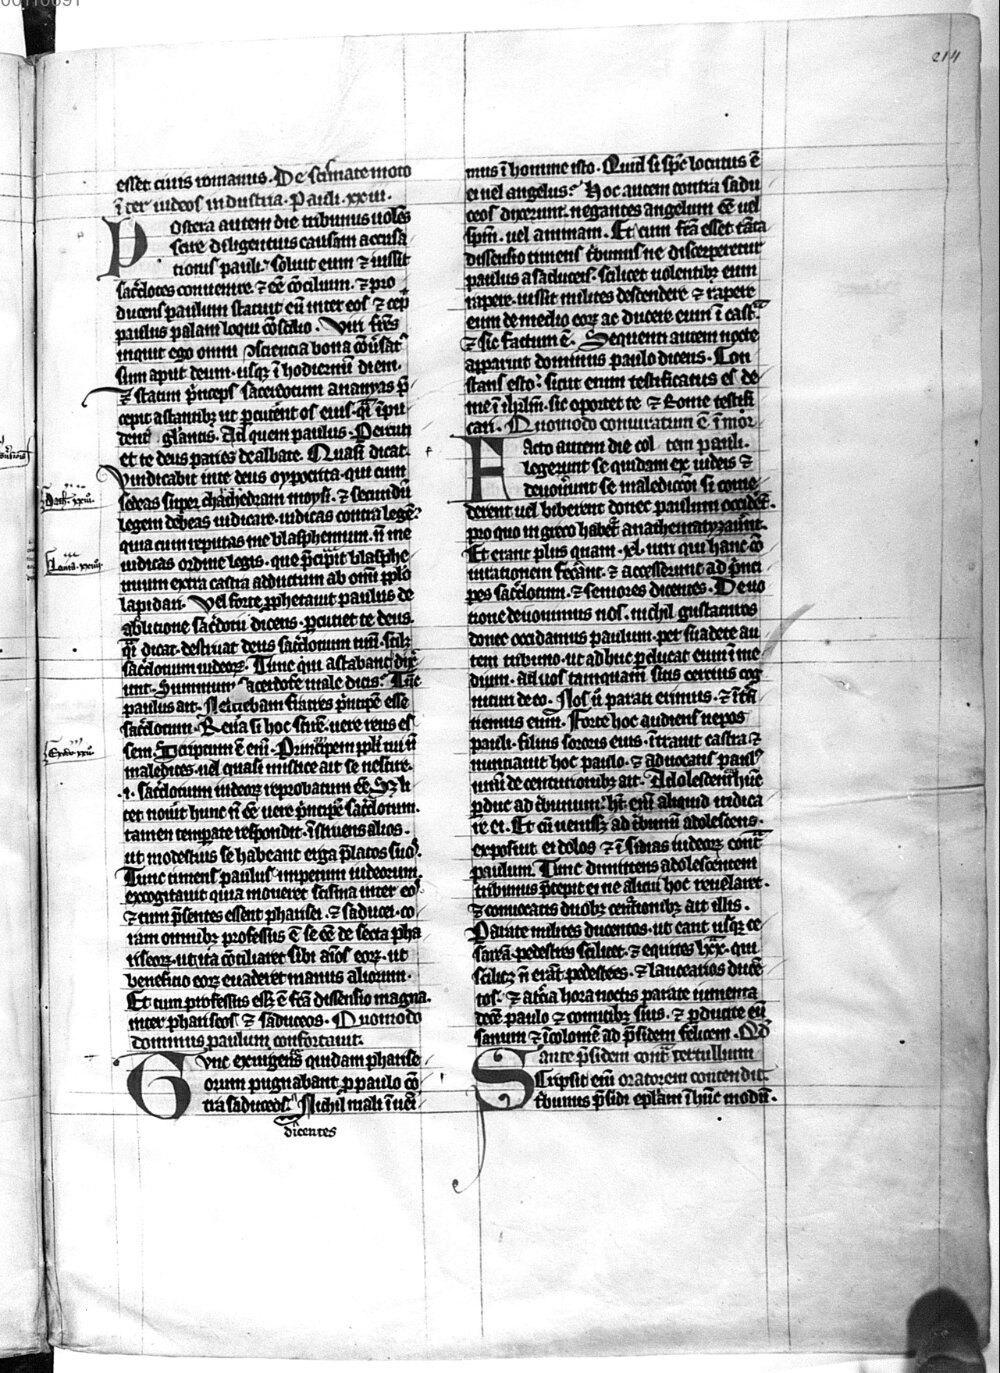 214
esset ciuis romanus. De scismate moto
ī ter iudeos industria. Pauli. xxiii.
Postera autem die tribunus uolēs
scire diligentius causam accusa
tionis pauli. soluit eum ⁊ iussit
sacͨdotes conuenire. ⁊ cē cōcilium. ⁊ pro
ducens paulum statuit eū inter eos ⁊ cep̄
paulus palam loqui cōscilio. Viri frēs
inquit ego omni ꝯsciencia bona cōuersatꝰ
sum aput deum. usqꝫ ī hodiernū diem.
⁊ statim p̄nceps sacerdotum ananyas p̄
cepit astantibꝫ ut ꝑcuterēt os eius.
Ad quem paulus. Percuti
et te deus paries dealbate. Quasi dicat.
Vindicabit in te deus o ypocrita. qui cum
sedeas super chathedram moysi. ⁊ secundū
legem debeas iudicare. iudicas contra legē?
quia cum reputas me blasphemum. n̄ me
iudicas ordine legis. que p̄cipit blasphe
mum extra castra adductum ab om̄i pp̄lo
lapidari. Vel forte ꝓphetauit paulus de
ablicione sacͨdotii dicens. ꝑcutiet te deus.
q̄i dicat. destruat deus sacͨdotium tuū. scilꝫ
sacͨdotium iudeoꝝ. Tunc qui astabant dixe
runt. Summum sacerdotē male dicis? Tūc
paulus ait. Nesciebam fratres p̄ncipē esse
sacͨdotum. Reuͣa si hoc sciuͥē. uere reus es
sem. Scriptum ē eni. Principem pp̄li tui n̄
maledices. uel quasi mistice ait se nescire.
.i. sacͨdotium iudeoꝝ reprobatum eē. Sꝫ li
cet nouit hunc n̄ eē uere p̄ncipē sacͨdotum.
tamen temꝑate respondit. īstruens alios.
ut modestius se habeant erga p̄latos suoꝭ.
Tunc timens paulus impetum iudeorum.
excogitauit quia moueret scisma inter eoꝭ.
⁊ cum p̄sentes essent pharisei. ⁊ saducei. co
ram omnibꝫ professus ē se eē de secta pha
riseoꝝ. ut ita cōciliaret sibi aīos eoꝝ. ut
beneficio eoꝝ euaderet manus aliorum.
Et cum professus esꝫ ē fc̄a dissensio magna.
inter phariseos ⁊ saduceos. Quomodo
dominus paulum confortauit.
Tunc exurgens quidam pharise
orum pugnabant ꝓ paulo cō
tra saduceos. Nichil mali īueī
dicentes
Math. xxiii.
Leuit. xxiiii.
Exodi. xxii.
mus ī homine isto. Quid si sp̄c locutus ē
ei uel angelus? Hoc autem contra sadu
ceos dixerunt. negantes angelum eē uel
sp̄m. uel animam. Et cum fc̄a esset tāta
dissensio timens tͥbunus ne discerperetur
paulus a saduceis. scilicet uolentibꝫ eum
rapere. iussit milites descendere ⁊ rapere
eum de medio eoꝝ ac ducere eum ī castͣ.
⁊ sic factum ē. Sequenti autem nocte
apparuit dominus paulo dicens. Con
stans esto. sicut enim testificatus es de
me ī ihrlm̄. sic oportet te ⁊ Rome testifi
cari. Quomodo coniuratum ē ī mor
Facto autem die col tem pauli.
legerunt se quidam ex iudeis ⁊
deuouerunt se malediccōi si come
derent uel biberent donec paulum occidēt.
pro quo in greco habet anathematyzaūnt.
Et erant plus quam .xl. uiri qui hanc cō
iurationem fecͥant. ⁊ accesserunt ad p̄nci
pes sacͨdotum. ⁊ seniores dicentes. Deuo
tione deuouimus nos. nichil gustaturos
donec occidamus paulum. pet suadete au
tem tribuno. ut adhuc ꝓducat eum ī me
dium. ad uos tamquam sitis certius cog
nituri de eo. Nos ū parati erimus. ⁊ īt̄fi
ciemus eum. Forte hoc audiens nepos
pauli. filius sororis eius. ītrauit castra ⁊
nunciauit hoc paulo. ⁊ aduocans paulꝰ
unū de centurionibꝫ ait. Adolescentē hūc
ꝑduc ad tͥbunum. ht̄ eni aliquid indica
re ei. Et cū uenissꝫ ad tͥbunū adolescens.
exposuit ei dolos ⁊ īsidias iudeoꝝ contͣ
paulum. Tunc dimittens adolescentem
tribunus p̄cepit ei ne alicui hoc reuelaret.
⁊ conuocatis duobꝫ centͥionibꝫ ait illis.
Parate milites ducentos. ut eant usqꝫ ce
saream. pedestres scilicet. ⁊ equites lxx. qui
scilicꝫ n̄ erāt pedestres. ⁊ lancearios ducē
tos. ⁊ a tͨcia hora noctis parate iumenta
docē paulo ⁊ comitibꝫ suis. ⁊ ꝑducite eū
sanum ⁊ īcolomē ad p̄sidem felicem. Qd̄
Sante p̄sidem contͣ tertullum
Scripsit eni oratorem contendit.
tͥbunus p̄sidi eplam ī hūc modū.